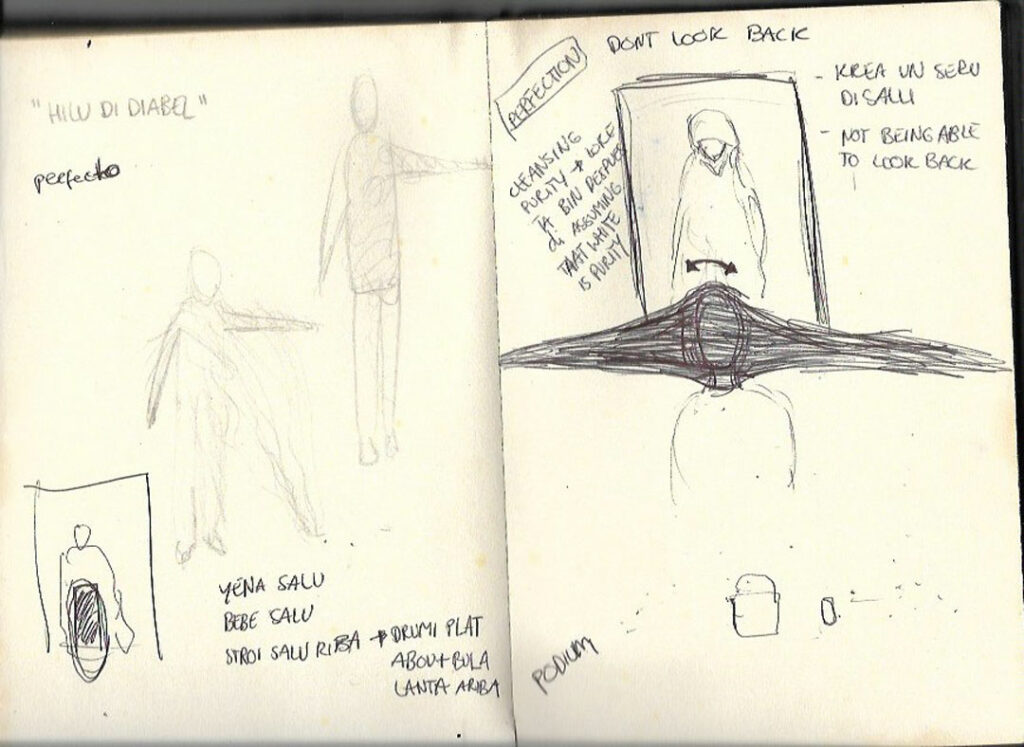 "HILU DI DIABEL"
perfecto
YENA SALU
BEBE SALU
STROI SALU RIBA → DRUMI PLAT
ABOU + BULA
LANTA ARIBA
PERFECTION
DONT LOOK BACK
- KREA UN SERU
DI SALU
- NOT BEING ABLE
TO LOOK BACK
CLEANSING
PURITY →
TA BIN DESPUES
di ASSUMING
THAT WHITE
IS PURITY
PODIUM